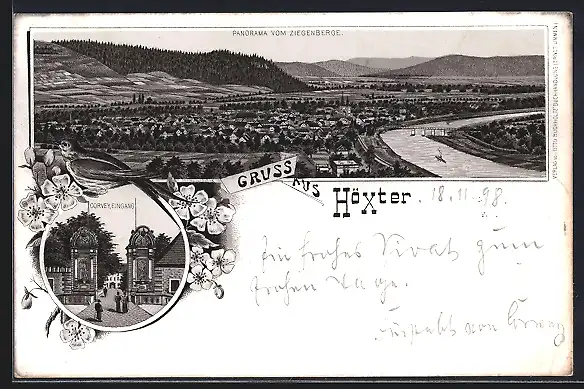 PANORAMA VOM ZIEGENBERGE.
GRUSS AUS Höxter. 18.11.98.
CORVEY, EINGANG
Ein frohes Vivat zum
frohen Tage.
von